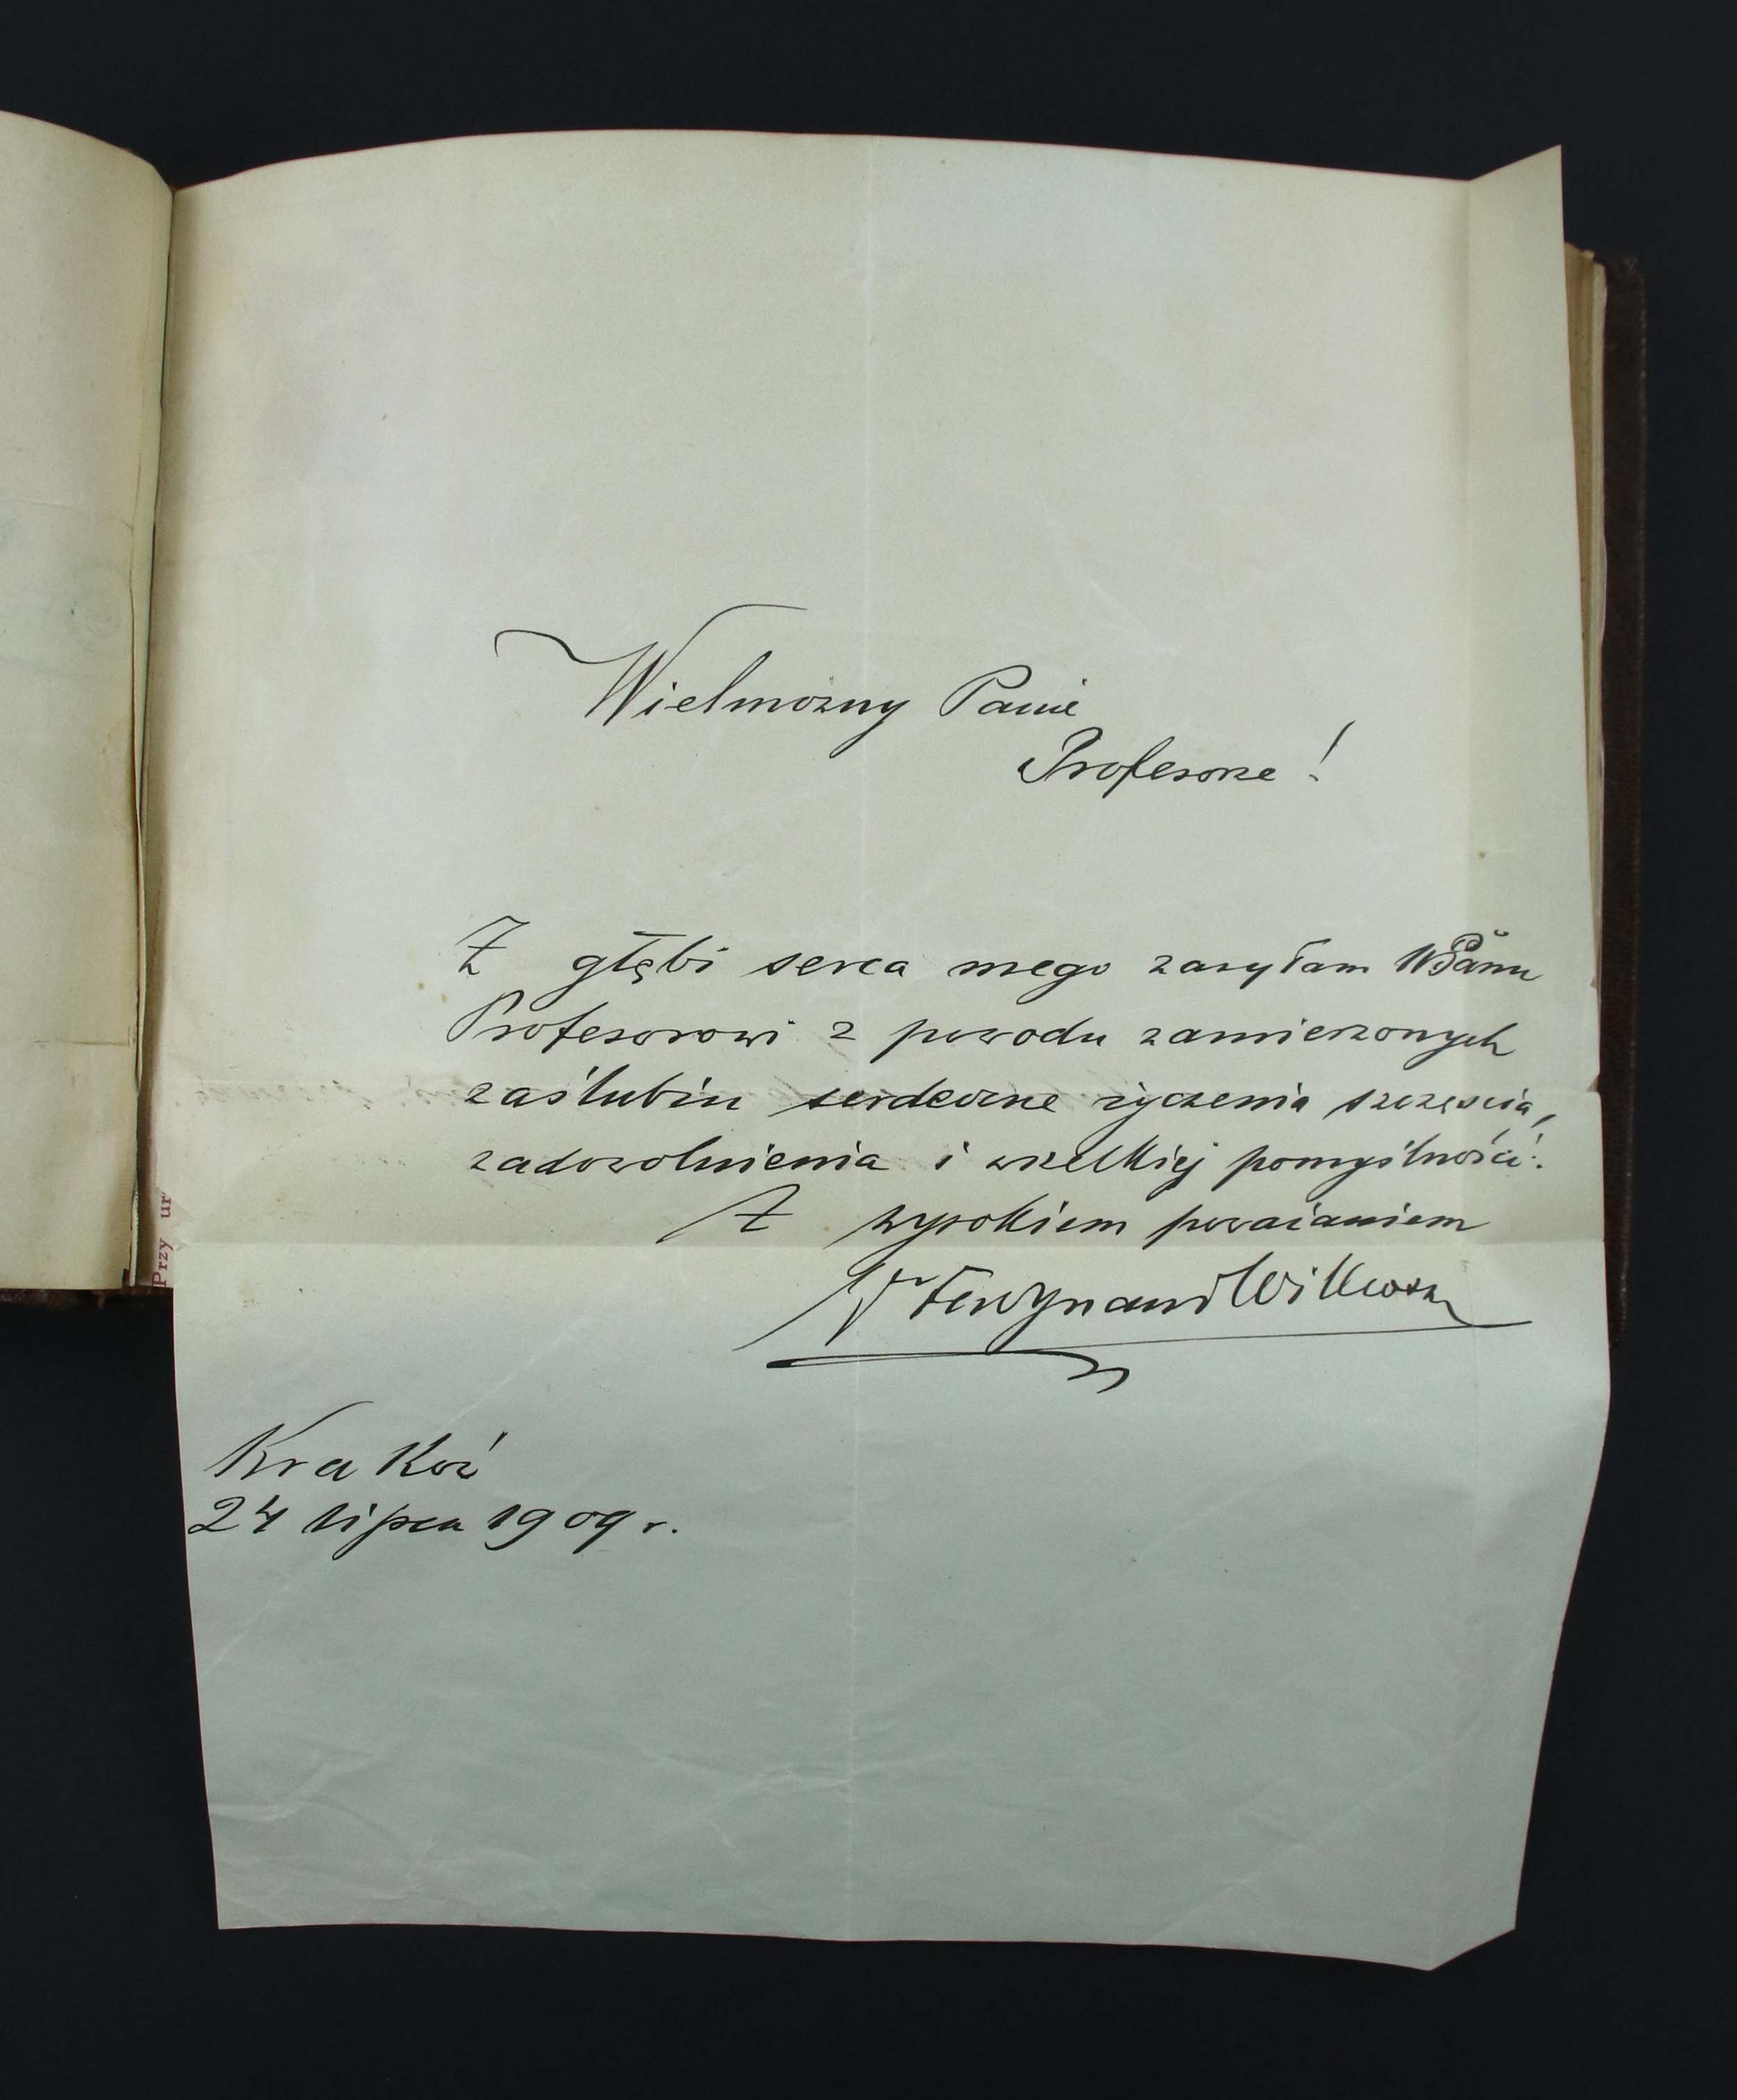 Wielmożny Panie
Profesorze!
Z głębi serca mego zasyłam WPanu
Profesorowi z powodu zamierzonych
zaślubin serdeczne życzenia szczęścia,
zadowolnienia i wszelkiej pomyślności.
Z wysokiem poważaniem
Ferdynand Wilkosz
Kraków
24 lipca 1909 r.
Przy ur